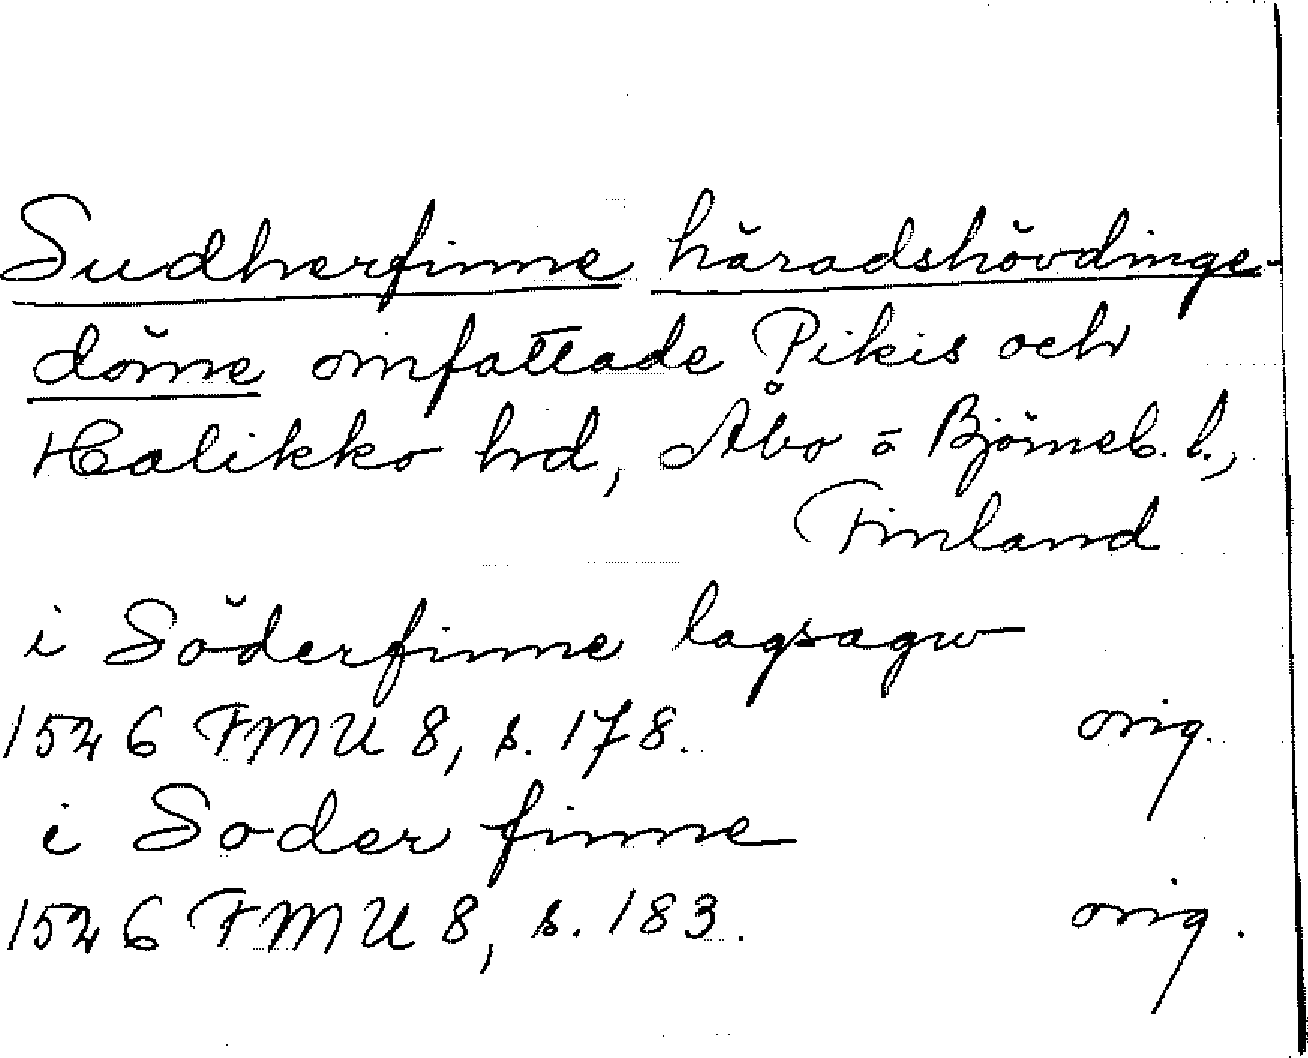 Sudherfinne häradshövdinge-
döme omfattade Pikis och
Halikko hd, Åbo o Björneb. l.,
Finland
i Söderfinne lagsagu
1526 FMU 8, s. 178. orig.
i Soder finne
1526 FMU 8, s. 183. orig.